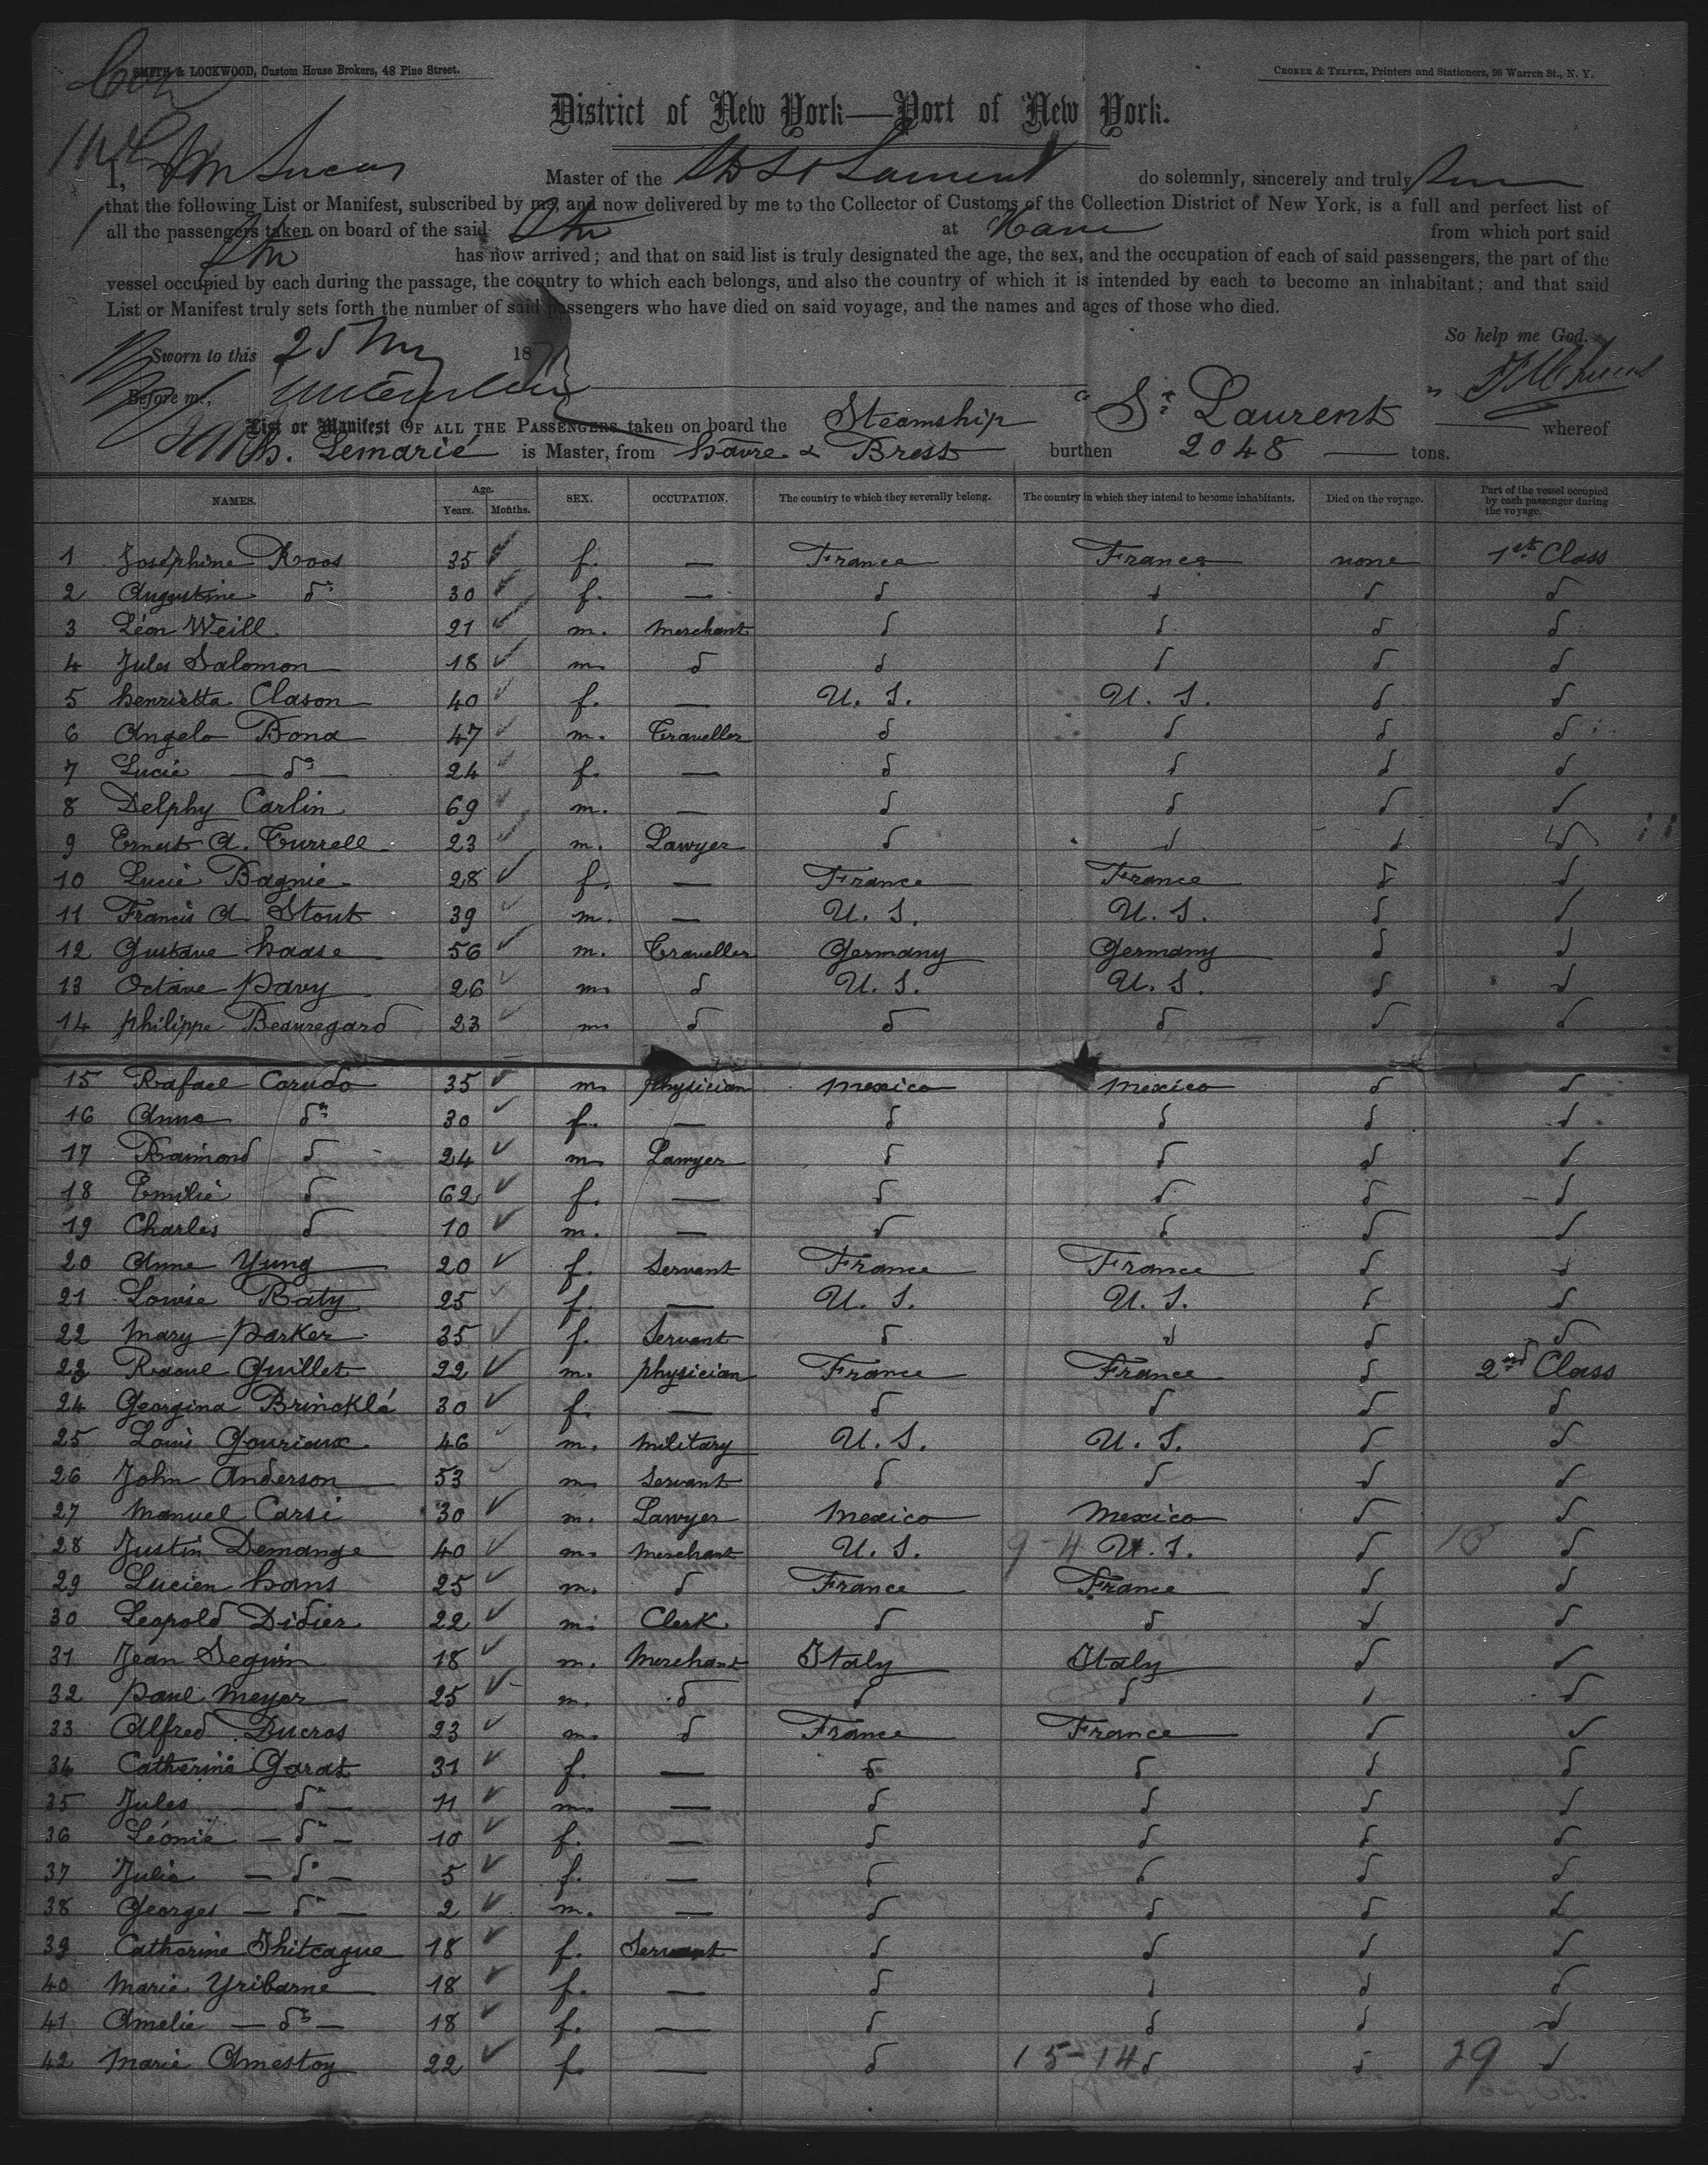 SMITH & LOCKWOOD, Custom House Brokers, 48 Pine Street.
CROKER & TELFER, Printers and Stationers, 96 Warren St., N. Y.
District of New York—Port of New York.
I, Master of the St Laurent do solemnly, sincerely and truly
that the following List or Manifest, subscribed by me, and now delivered by me to the Collector of Customs of the Collection District of New York, is a full and perfect list of
all the passengers taken on board of the said at Havre from which port said
has now arrived; and that on said list is truly designated the age, the sex, and the occupation of each of said passengers, the part of the
vessel occupied by each during the passage, the country to which each belongs, and also the country of which it is intended by each to become an inhabitant; and that said
List or Manifest truly sets forth the number of said passengers who have died on said voyage, and the names and ages of those who died.
So help me God.
Sworn to this 25 187
Before me,
List or Manifest OF ALL THE PASSENGERS taken on board the Steamship "St Laurent" whereof
Lemarié is Master, from havre & Brest burthen 2048 tons.
NAMES. Age. Years. Months. SEX. OCCUPATION. The country to which they severally belong. The country in which they intend to become inhabitants. Died on the voyage. Part of the vessel occupied by each passenger during the voyage.
1 Joséphine Roos 35 f. — France France none 1st Class
2 Augustine do 30 f. — d d d d
3 Léon Weill 21 m. merchant d d d d
4 Jules Salomon 18 m. d d d d d
5 henrietta Clason 40 f. — U. S. U. S. d d
6 Angelo Bona 47 m. Traveller d d d d
7 Lucie — do — 24 f. — d d d d
8 Delphy Carlin 69 m. — d d d d
9 Ernest A. Turrell 23 m. Lawyer d d d d
10 Lucie Bagnie 28 f. — France France d d
11 Francis A Stout 39 m. — U. S. U. S. d d
12 Gustave haase 56 m. Traveller Germany Germany d d
13 Octave pavy 26 m. d U. S. U. S. d d
14 philippe Beauregard 23 m. d d d d d
15 Rafael Carudo 35 m. physician mexico mexico d d
16 Anna do 30 f. — d d d d
17 Raimond d 24 m. Lawyer d d d d
18 Emilie d 62 f. — d d d d
19 Charles d 10 m. — d d d d
20 Anne Yung 20 f. Servant France France d d
21 Louise Baty 25 f. — U. S. U. S. d d
22 mary parker 35 f. Servant d d d d
23 Raoul Guillet 22 m. physician France France d 2nd Class
24 Georgina Brincklé 30 f. — d d d d
25 Louis Gouriaux 46 m. military U. S. U. S. d d
26 John Anderson 53 m. Servant d d d d
27 manuel Carsi 30 m. Lawyer mexico mexico d d
28 Justin Demange 40 m. merchant U. S. 9-4 U. S. d 10 d
29 Lucien hans 25 m. d France France d d
30 Leopold Didier 22 m. Clerk d d d d
31 Jean Seguin 18 m. merchant Italy Italy d d
32 paul meyer 25 m. d d d d d
33 Alfred Ducros 23 m. d France France d d
34 Catherine Garat 31 f. — d d d d
35 Jules — do — 11 m. — d d d d
36 Léonie — do — 10 f. — d d d d
37 Julia — do — 5 f. — d d d d
38 Georges — do — 2 m. — d d d d
39 Catherine Ihitcague 18 f. Servant d d d d
40 marie Yribarne 18 f. — d d d d
41 Amelie — do — 18 f. — d d d d
42 marie Amestoy 22 f. — d 15-14 d d 29 d